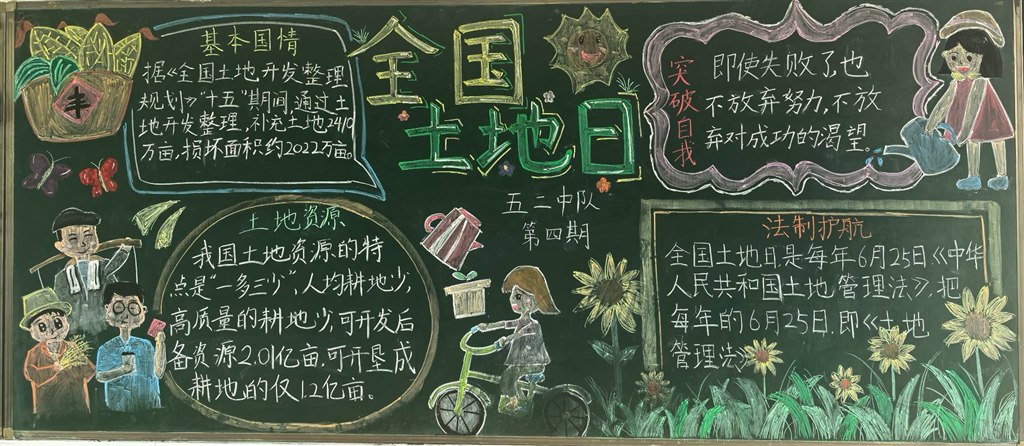 全国
土地日
五二中队
第四期
丰
基本国情
据《全国土地开发整理
规划》"十五"期间,通过土
地开发整理,补充土地2410
万亩,损坏面积约2022万亩。
突破自我
即使失败了,也
不放弃努力,不放
弃对成功的渴望。
土地资源
我国土地资源的特
点是"一多三少",人均耕地少,
高质量的耕地少,可开发后
备资源2.01亿亩,可开垦成
耕地的仅1.2亿亩。
法制护航
全国土地日是每年6月25日《中华
人民共和国土地管理法》,把
每年的6月25日,即《土地
管理法》